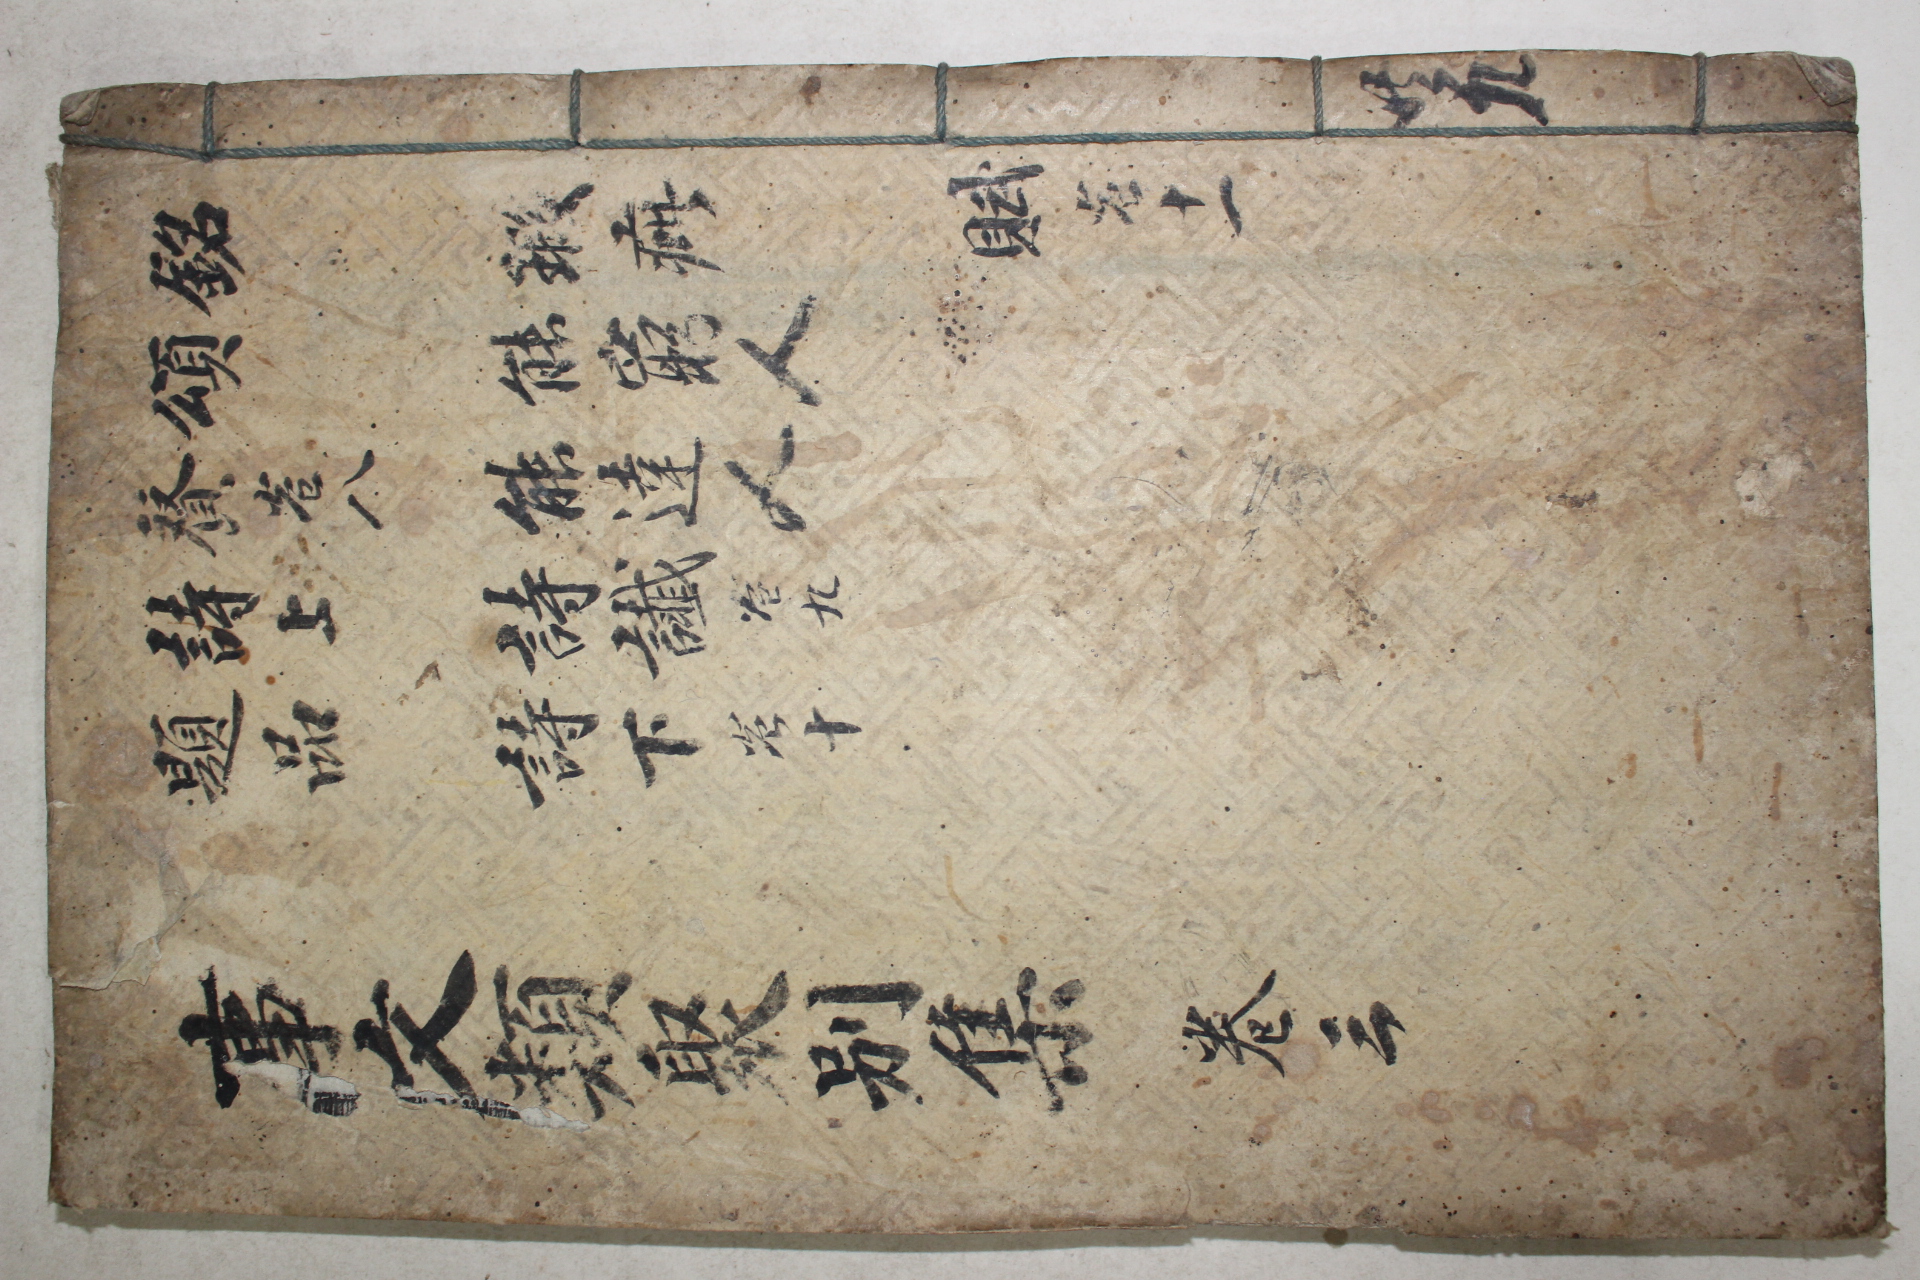 銘
頌
贊 卷八
詩上
題品
能窮人
能達人
詩讖 卷九
詩下 卷十
賦 卷十一
事文類聚別集 卷三